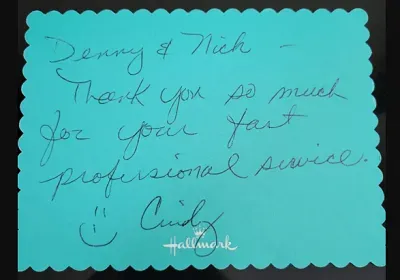 Denny & Nick -
Thank you so much
for your fast
professional service.
Cindy
Hallmark